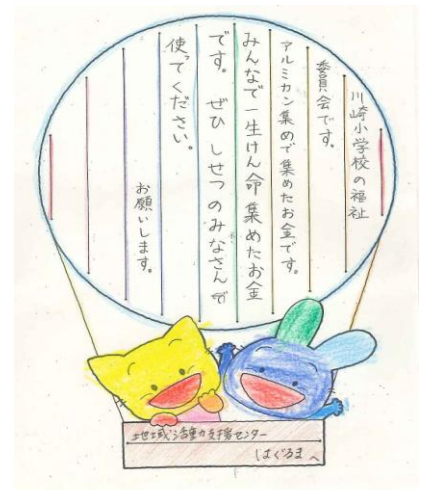 川崎小学校の福祉
委員会です。
アルミカン集めで集めたお金です。
みんなで一生けん命集めたお金
です。ぜひしせつのみなさんで
使ってください。
お願いします。
地域活動支援センター
はぐるまへ